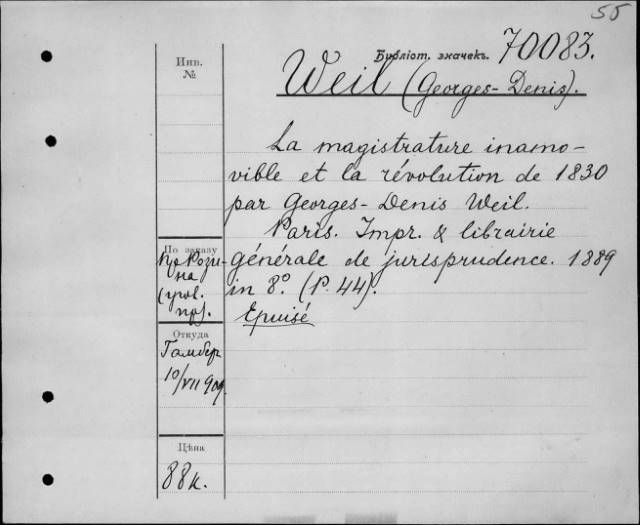 55
Библіот. значекъ. 70083.
Инв.
№
Weil (Georges-Denis).
La magistrature inamo-
vible et la révolution de 1830
par Georges-Denis Weil.
Paris. Impr. & librairie
générale de jurisprudence. 1889
in 8°. (P. 44).
Epuisé
По заказу
Пр. Рози-
на
(угол.
пр).
Откуда
Гамбер
10/VII 909
Цѣна
88 к.